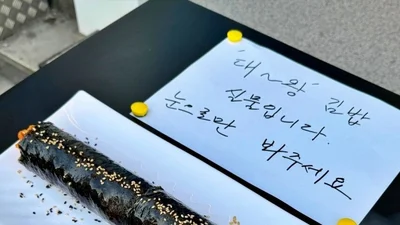 '대~왕' 김밥
실물입니다.
눈으로만 봐주세요